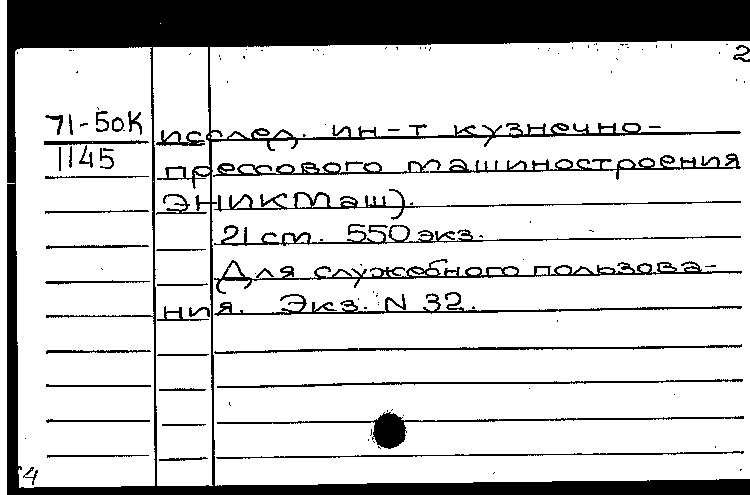 2
71-5oK
1145
исслед. ин-т кузнечно-
прессового машиностроения
ЭНИКМаш).
21 см. 550 экз.
Для служебного пользова-
ния. Экз. N 32.
4